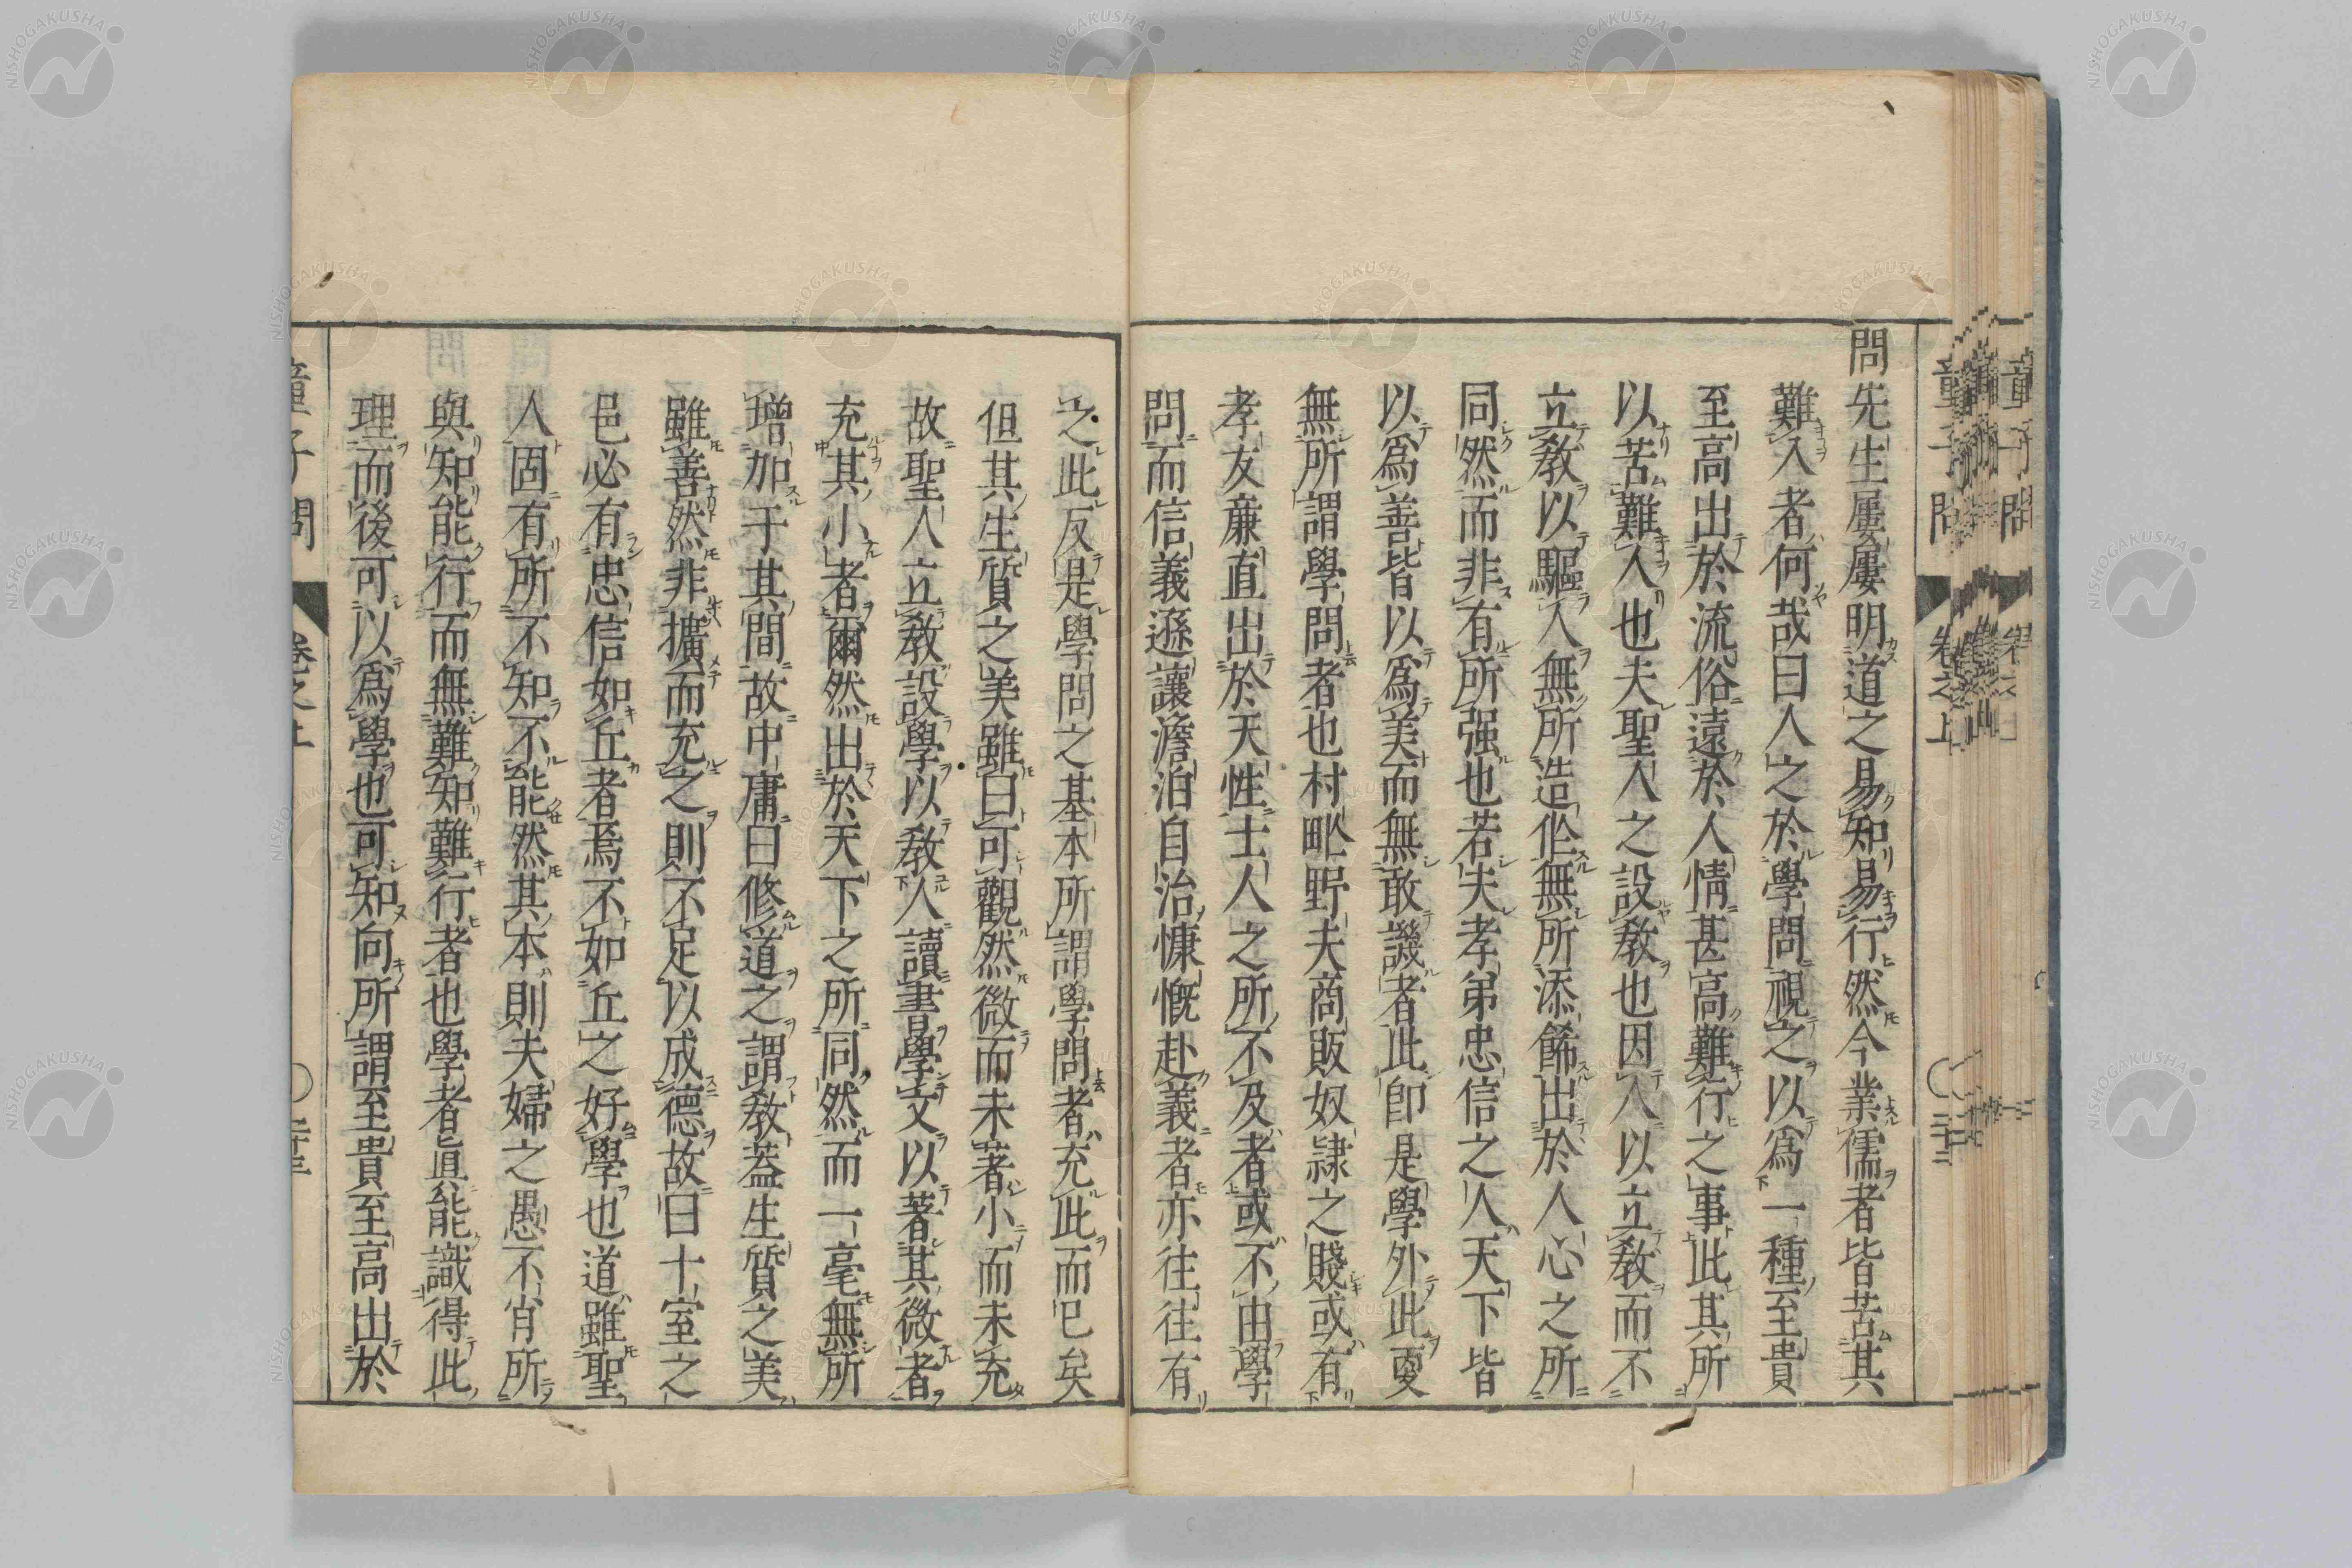 童子問 卷之上 〇二十二
問先生屢屢明道之易知易行然今業儒者皆苦其
難入者何哉曰人之於學問視之以爲一種至貴
至高出於流俗遠於人情甚高難行之事此其所
以苦難入也夫聖人之設教也因人以立教而不
立教以驅人無所造作無所添餙出於人心之所
同然而非有所强也若夫孝弟忠信之人天下皆
以爲善皆以爲美而無敢譏者此卽是學外此更
無所謂學問者也村甿野夫商販奴隷之賤或有
孝友廉直出於天性士人之所不及者或不由學
問而信義遜讓澹泊自治慷慨赴義者亦往往有
之此反是學問之基本所謂學問者充此而已矣
但其生質之美雖曰可觀然微而未著小而未充
故聖人立教設學以教人讀書學文以著其微者
充其小者爾然出於天下之所同然而一毫無所
增加于其間故中庸曰修道之謂教蓋生質之美
雖善然非擴而充之則不足以成德故曰十室之
邑必有忠信如丘者焉不如丘之好學也道雖聖
人固有所不知不能然其本則夫婦之愚不肖所
與知能行而無難知難行者也學者眞能識得此
理而後可以爲學也可知向所謂至貴至高出於
童子問 卷之上 〇二十三
NISHOGAKUSHA